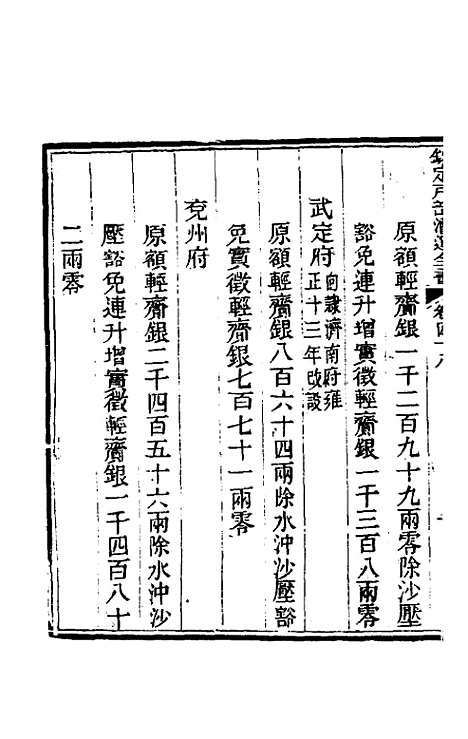 欽定戶部漕運全書 卷四十八
原額輕齎銀一千二百九十九兩零除沙壓
豁免連升增實徵輕齎銀一千三百八兩零
武定府向隸濟南府雍正十三年改設
原額輕齎銀八百六十四兩除水沖沙壓豁
免實徵輕齎銀七百七十一兩零
兖州府
原額輕齎銀二千四百五十六兩除水沖沙
壓豁免連升增實徵輕齎銀一千四百八十
二兩零